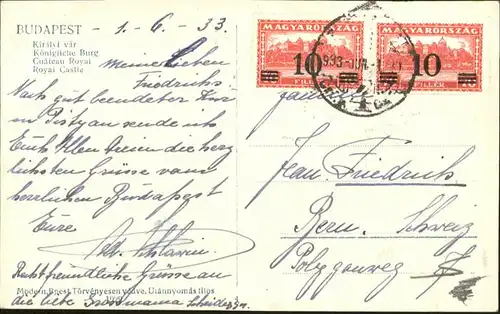 BUDAPEST - 1. - 6. - 33.
Királyi vár
Königliche Burg
Château Royal
Royal Castle
Meine lieben
Friedrichs
Nach gut beendeter Kur
in Pistyan sende ich
Euch Allen Dreien die herz
lichsten Grüsse vom
herrlichen Budapest
Eure
Recht freundliche Grüsse an
die liebe Grossmama
Modern Ernest Törvényesen védve. Utánnyomás tilos.
MAGYARORSZÁG
10
FILLÉR
MAGYARORSZÁG
10
FILLÉR
Friedrich
Bern. Schweiz
Polygonweg 7